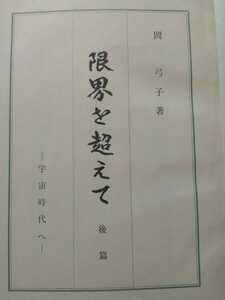 関 弓子著
限界を超えて
後篇
―宇宙時代へ―